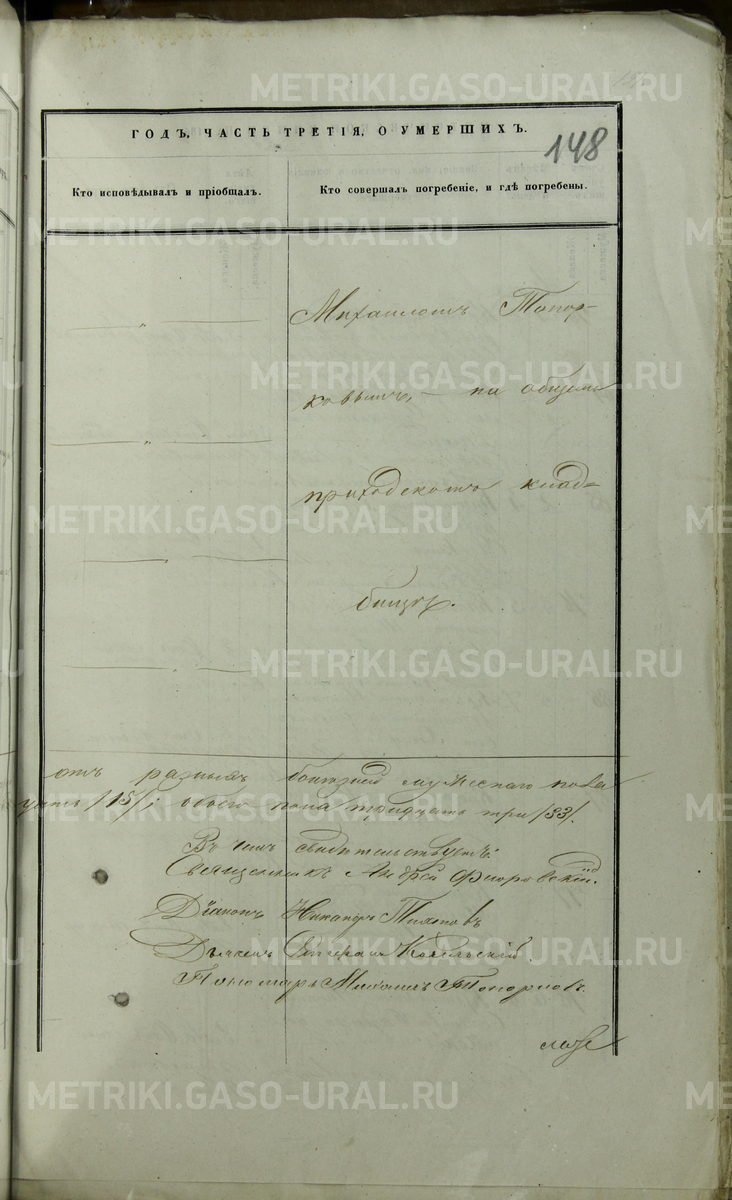 ГОДЪ, ЧАСТЬ ТРЕТІЯ, О УМЕРШИХЪ.
148
Кто исповѣдывалъ и пріобщалъ.
Кто совершалъ погребеніе, и гдѣ погребены.
Михаиломъ Топор-
ковымъ, — на общемъ
приходскомъ клад-
бищѣ.
отъ разныхъ болѣзней мужескаго пола
/15/; обоего пола тридцать три /33/.
Въ чемъ свидѣтельствуютъ:
Священникъ Андрей Флоровскій.
Діаконъ Никандръ Тихоновъ
Дьячекъ
Пономарь Михаилъ Топорковъ.
METRIKI.GASO-URAL.RU